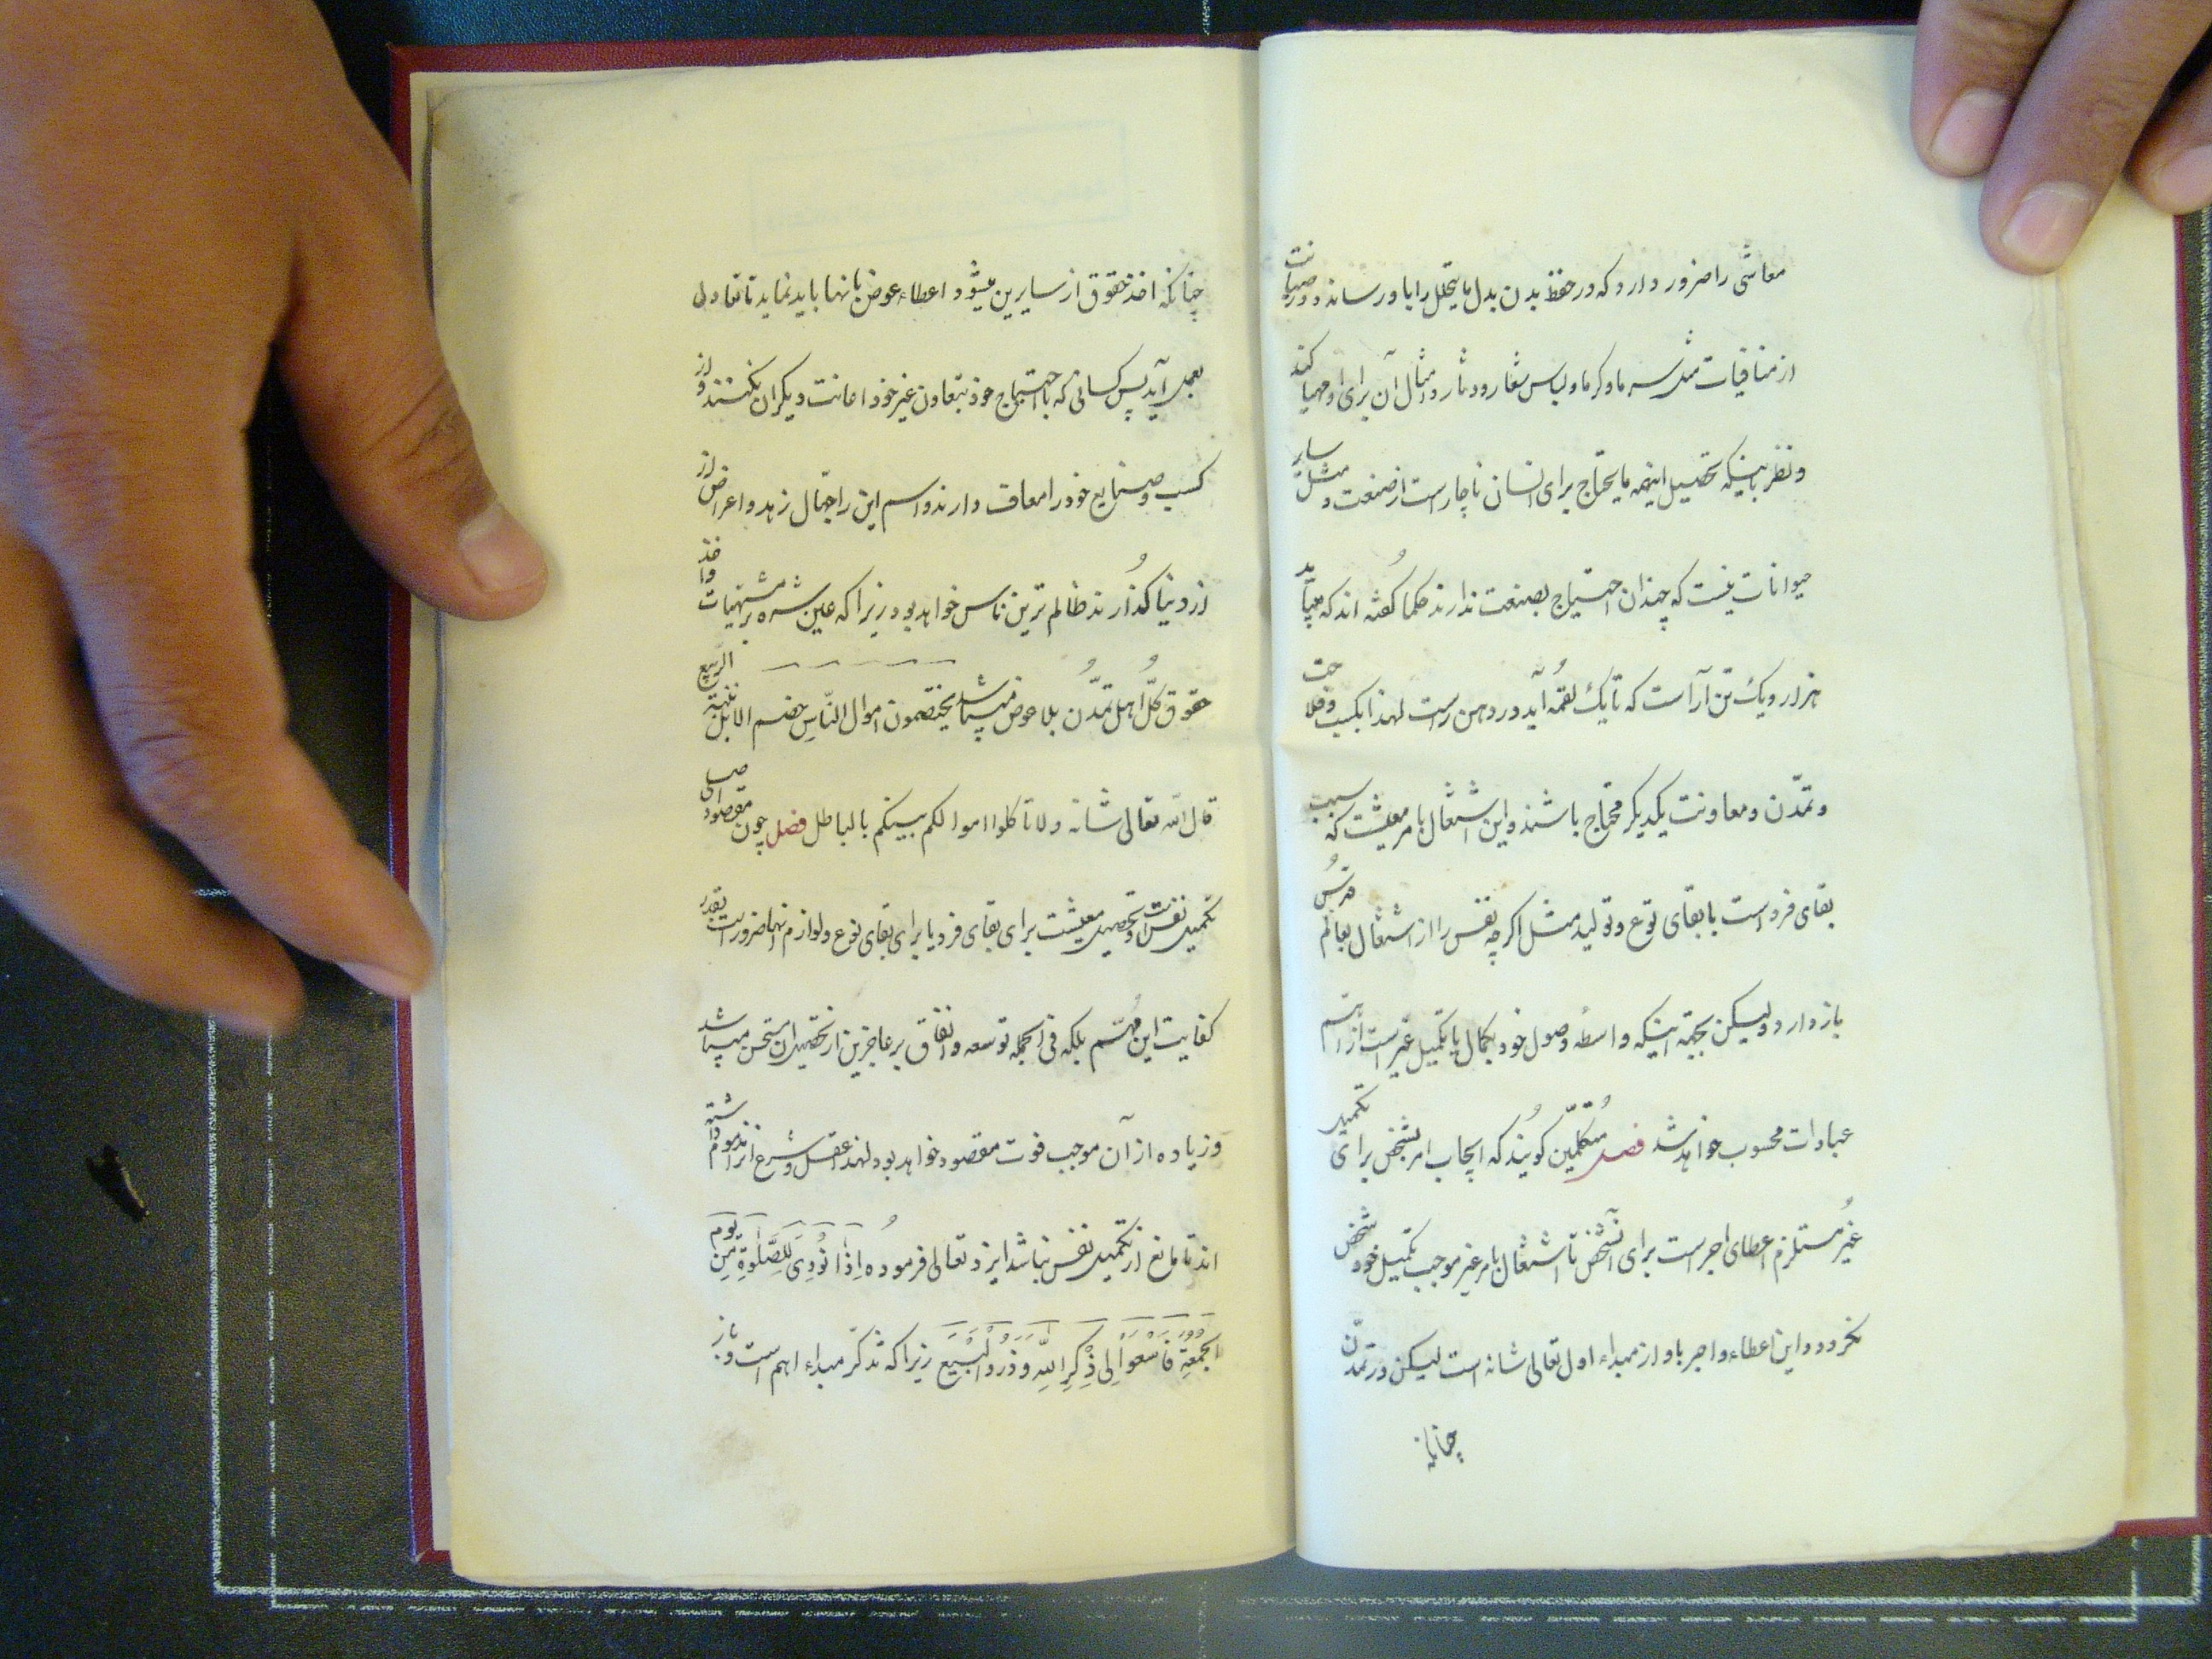 معاشی را ضرور دارد که در حفظ بدن بدل مایتحلل را باو رساند و در صیانت
از منافیات مثل سرما و گرما و لباس شعار و دثار و امثال آن برای او مهیا کند
و نظر باینکه تحصیل اینهمه مایحتاج برای انسان ناچار است از صنعت و مثل سایر
حیوانات نیست که چندان احتیاج بصنعت ندارند حکما گفته اند که بیباید
هزار و یک تن آراست که تا یک لقمه آید در دهن راست لهذا بکسب و فلاحت
و تمدّن و معاونت یکدیگر محتاج باشند و این اشتغال بامر معیشت که سبب
بقای فرد است یا بقای نوع و تولید مثل اگر چه نفس را از اشتغال بعالم قدس
باز دارد ولیکن بجهة اینکه واسطه وصول خود بکمال یا تکمیل غیر است از اتم
عبادات محسوب خواهد شد فصل متکلمّین گویند که ایجاب امر بشخص برای تکمیل
غیر مستلزم اعطای اجر است برای آنشخص تا اشتغال بامر غیر موجب تکمیل خود شخص
نگردد و این اعطاء و اجر باو از مبداء اول تعالی شانه است لیکن در تمدّن
چنانکه
چنانکه اخذ حقوق از سایرین میشود اعطاء عوض بانها باید نماید تا تعادلی
بعمل آید پس کسانی که با احتیاج خود بتعاون غیر خود اعانت دیگران نکنند و از
کسب و صنایع خود را معاف دارند و اسم این را جهّال زهد و اعراض از
از دنیا گذارند ظالم ترین ناس خواهد بود زیرا که عین شره بر مشتهیات و اخذ
حقوق کلّ اهل تمدّن بلا عوض میباشد یخضمون اموال النّاس خضم الابل نبتة الرّبیع
قال الله تعالی شانه ولا تاکلوا اموالکم بینکم بالباطل فصل چون مقصود اصلی
تکمیل نفس است و تحصیل معیشت برای بقای فرد یا برای بقای نوع و لوازم انها ضرور است بقدر
کفایت این مهّم بلکه فی الجمله توسعه و انفاق بر عاجزین از تحصیل ان مستحسن میباشد
و زیاده از آن موجب فوت مقصود خواهد بود لهذا عقل و شرع انرا مذموم داشته
اند تا مانع از تکمیل نفس نباشد ایزد تعالی فرموده اِذٰا نُودِیَ لِلصَّلٰوةِ مِن یَوم
الجُمُعَةِ فَاسْعَوْا اِلی ذِکْرِ اللّهِ وَ ذَرُوا الْبَیْعَ زیرا که تذکّر مبداء اهم است و باز